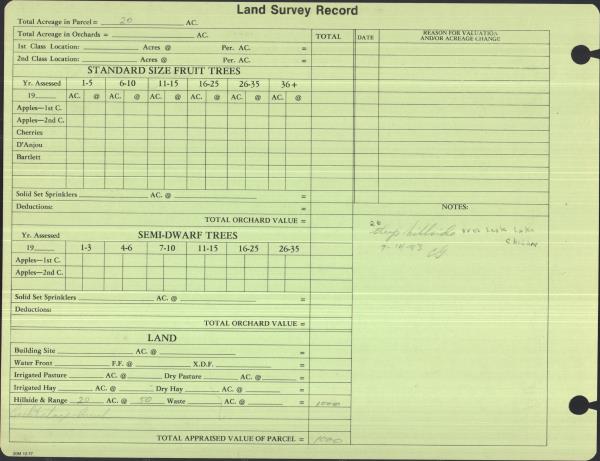 Land Survey Record
Total Acreage in Parcel = 20 AC.
Total Acreage in Orchards = AC. TOTAL DATE REASON FOR VALUATION AND/OR ACREAGE CHANGE
1st Class Location: Acres @ Per. AC.
2nd Class Location: Acres @ Per. AC.
STANDARD SIZE FRUIT TREES
Yr. Assessed 1-5 6-10 11-15 16-25 26-35 36+
19 AC. @ AC. @ AC. @ AC. @ AC. @ AC. @
Apples—1st C.
Apples—2nd C.
Cherries
D'Anjou
Bartlett
Solid Set Sprinklers AC. @ =
Deductions: = NOTES:
TOTAL ORCHARD VALUE =
20
Steep hillside over look Lake Chelan
9-14-83
SEMI-DWARF TREES
Yr. Assessed
19 1-3 4-6 7-10 11-15 16-25 26-35
Apples—1st C.
Apples—2nd C.
Solid Set Sprinklers AC. @ =
Deductions:
TOTAL ORCHARD VALUE =
LAND
Building Site AC. @ =
Water Front F.F. @ X.D.F. =
Irrigated Pasture AC. @ Dry Pasture AC. @ =
Irrigated Hay AC. @ Dry Hay AC. @ =
Hillside & Range 20 AC. @ 50 Waste AC. @ = 1000
TOTAL APPRAISED VALUE OF PARCEL = 1000
20M 12-77